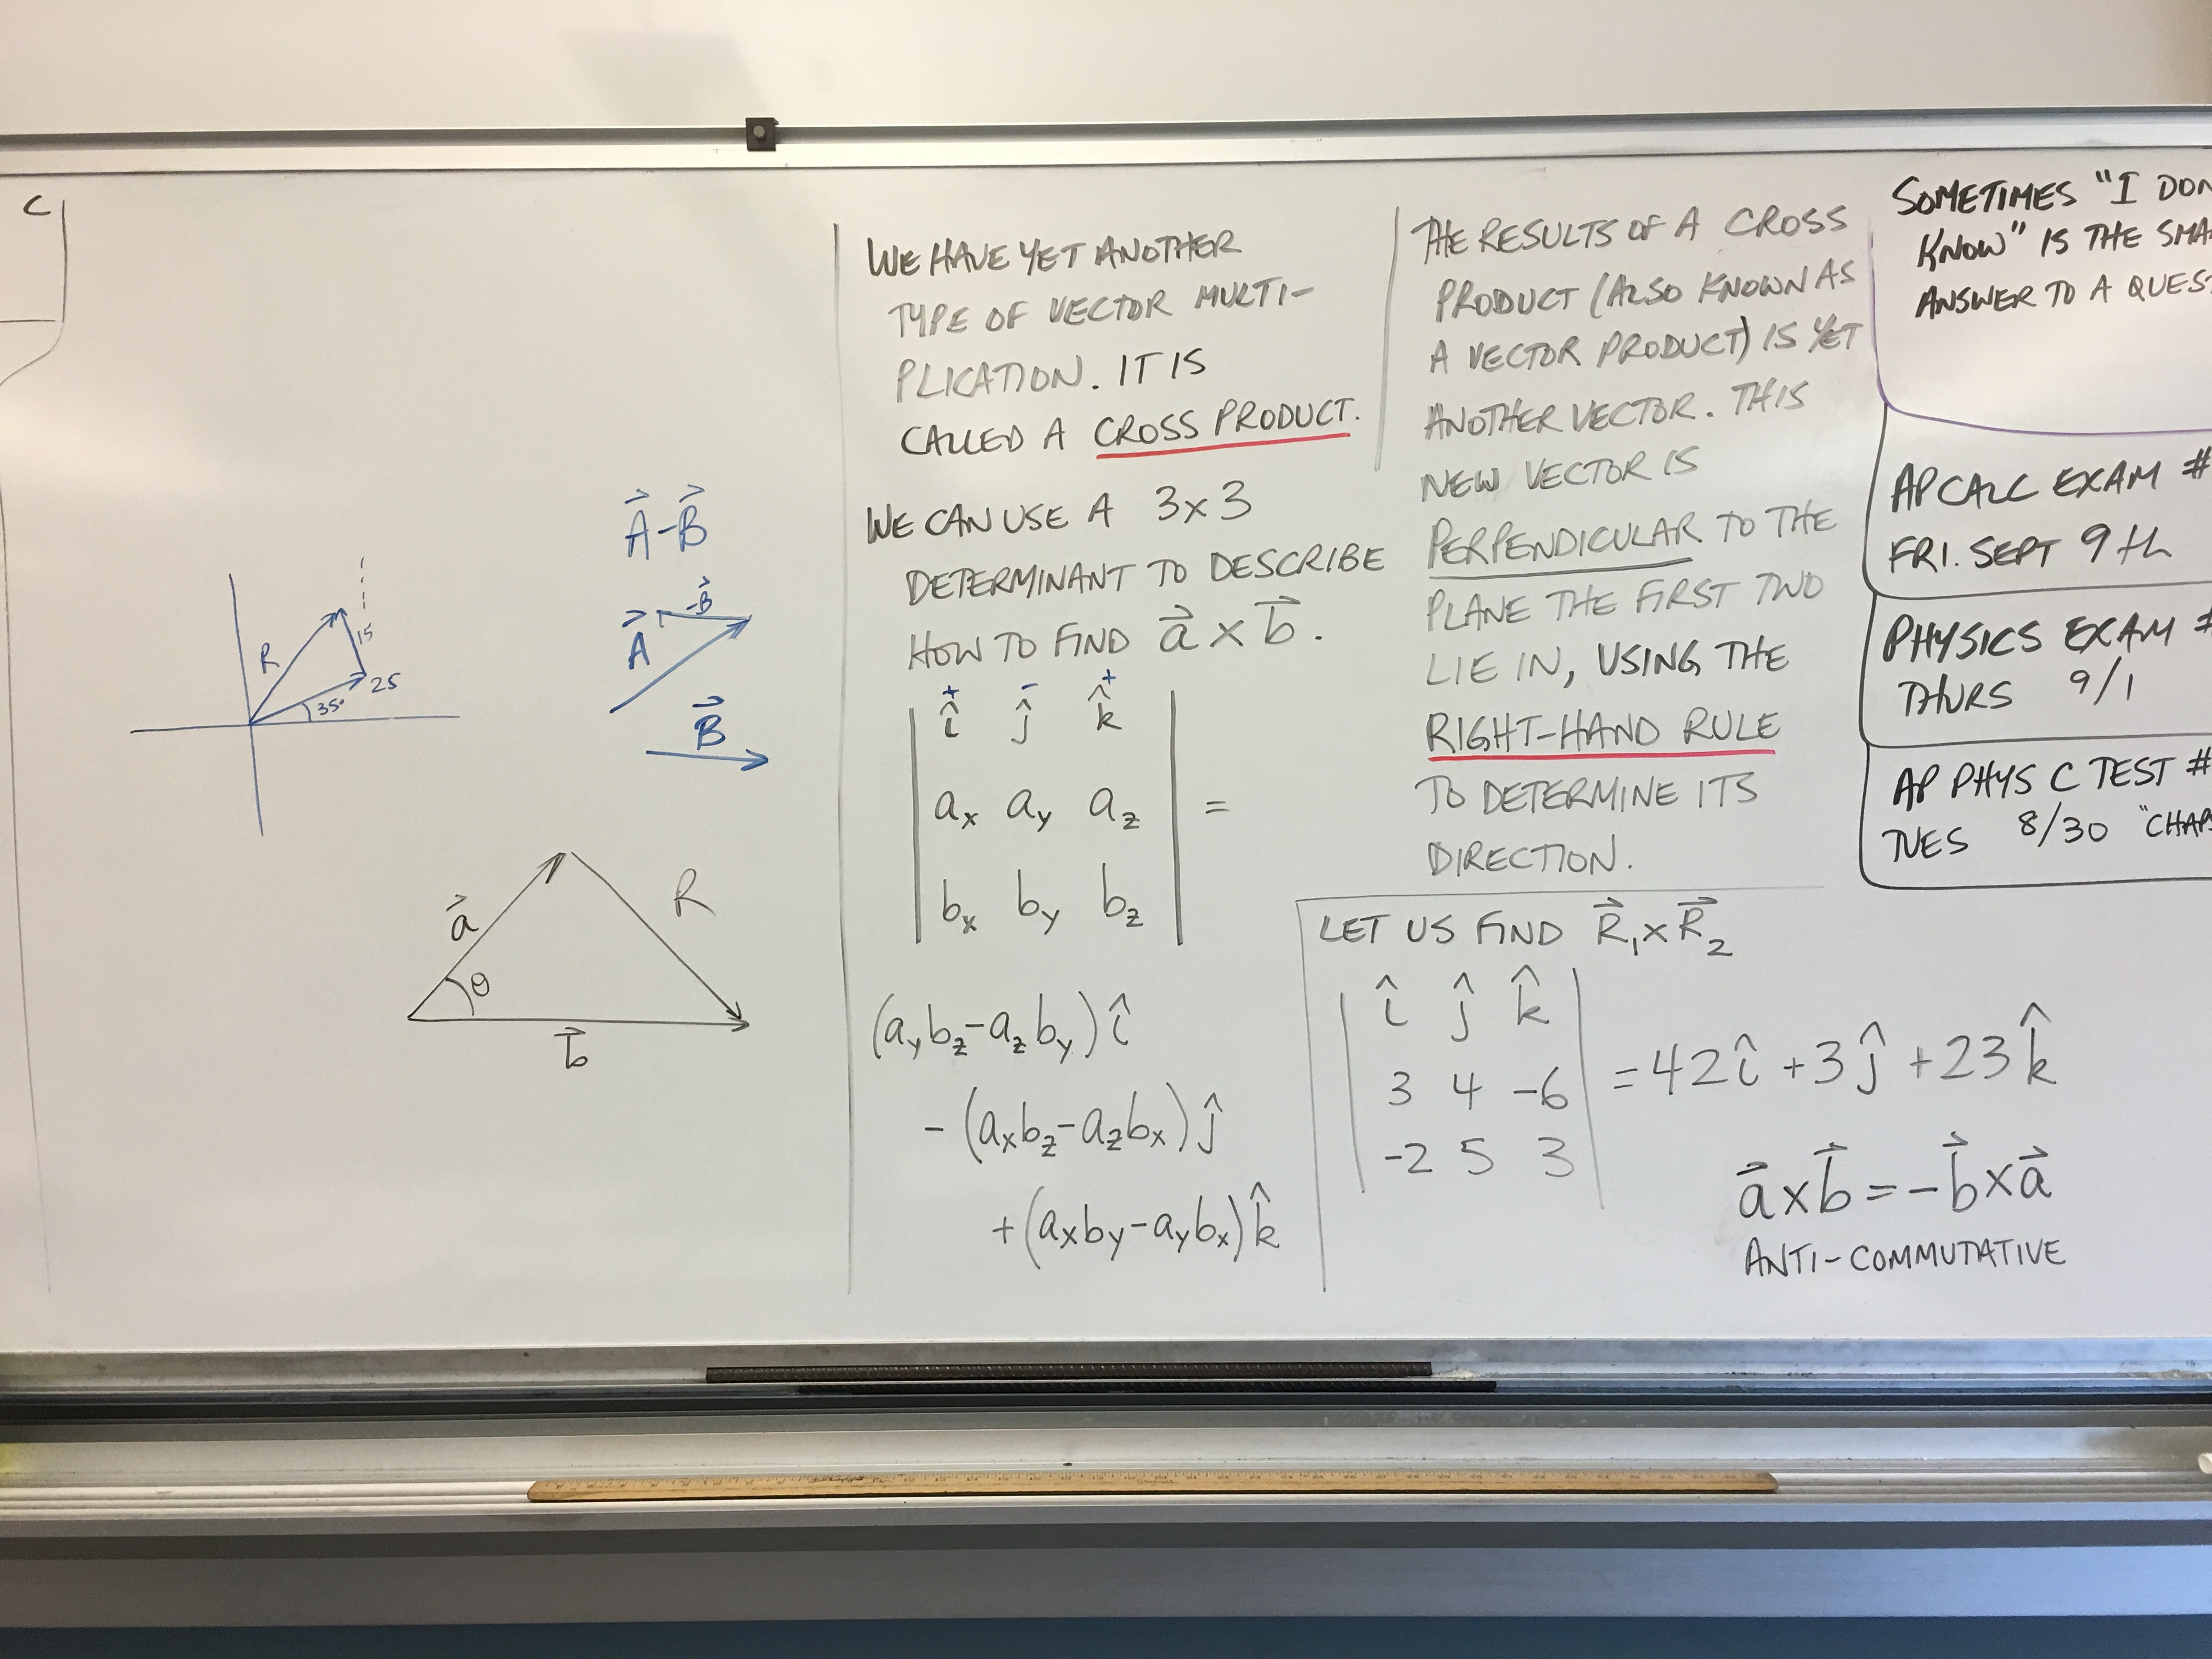 C
R
15
25
35°
A⃗-B⃗
-B⃗
A⃗
B⃗
a⃗
θ
R
b⃗
WE HAVE YET ANOTHER
TYPE OF VECTOR MULTI-
PLICATION. IT IS
CALLED A CROSS PRODUCT.
WE CAN USE A 3x3
DETERMINANT TO DESCRIBE
HOW TO FIND a⃗ x b⃗.
+ - +
î ĵ k̂
aₓ a_y a_z =
bₓ b_y b_z
(a_y b_z - a_z b_y) î
- (aₓb_z - a_z bₓ) ĵ
+ (aₓb_y - a_y bₓ) k̂
THE RESULTS OF A CROSS
PRODUCT (ALSO KNOWN AS
A VECTOR PRODUCT) IS YET
ANOTHER VECTOR. THIS
NEW VECTOR IS
PERPENDICULAR TO THE
PLANE THE FIRST TWO
LIE IN, USING THE
RIGHT-HAND RULE
TO DETERMINE ITS
DIRECTION.
LET US FIND R⃗₁ x R⃗₂
î ĵ k̂
3 4 -6 = 42î + 3ĵ + 23k̂
-2 5 3
a⃗ x b⃗ = -b⃗ x a⃗
ANTI-COMMUTATIVE
SOMETIMES "I DON
KNOW" IS THE SMA
ANSWER TO A QUEST
AP CALC EXAM #
FRI. SEPT 9th
PHYSICS EXAM #
THURS 9/1
AP PHYS C TEST #
TUES 8/30 "CHAP